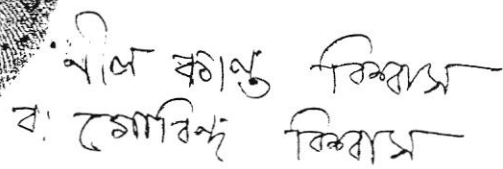 নীল কান্ত বিশ্বাস
ব: গোবিন্দ বিশ্বাস